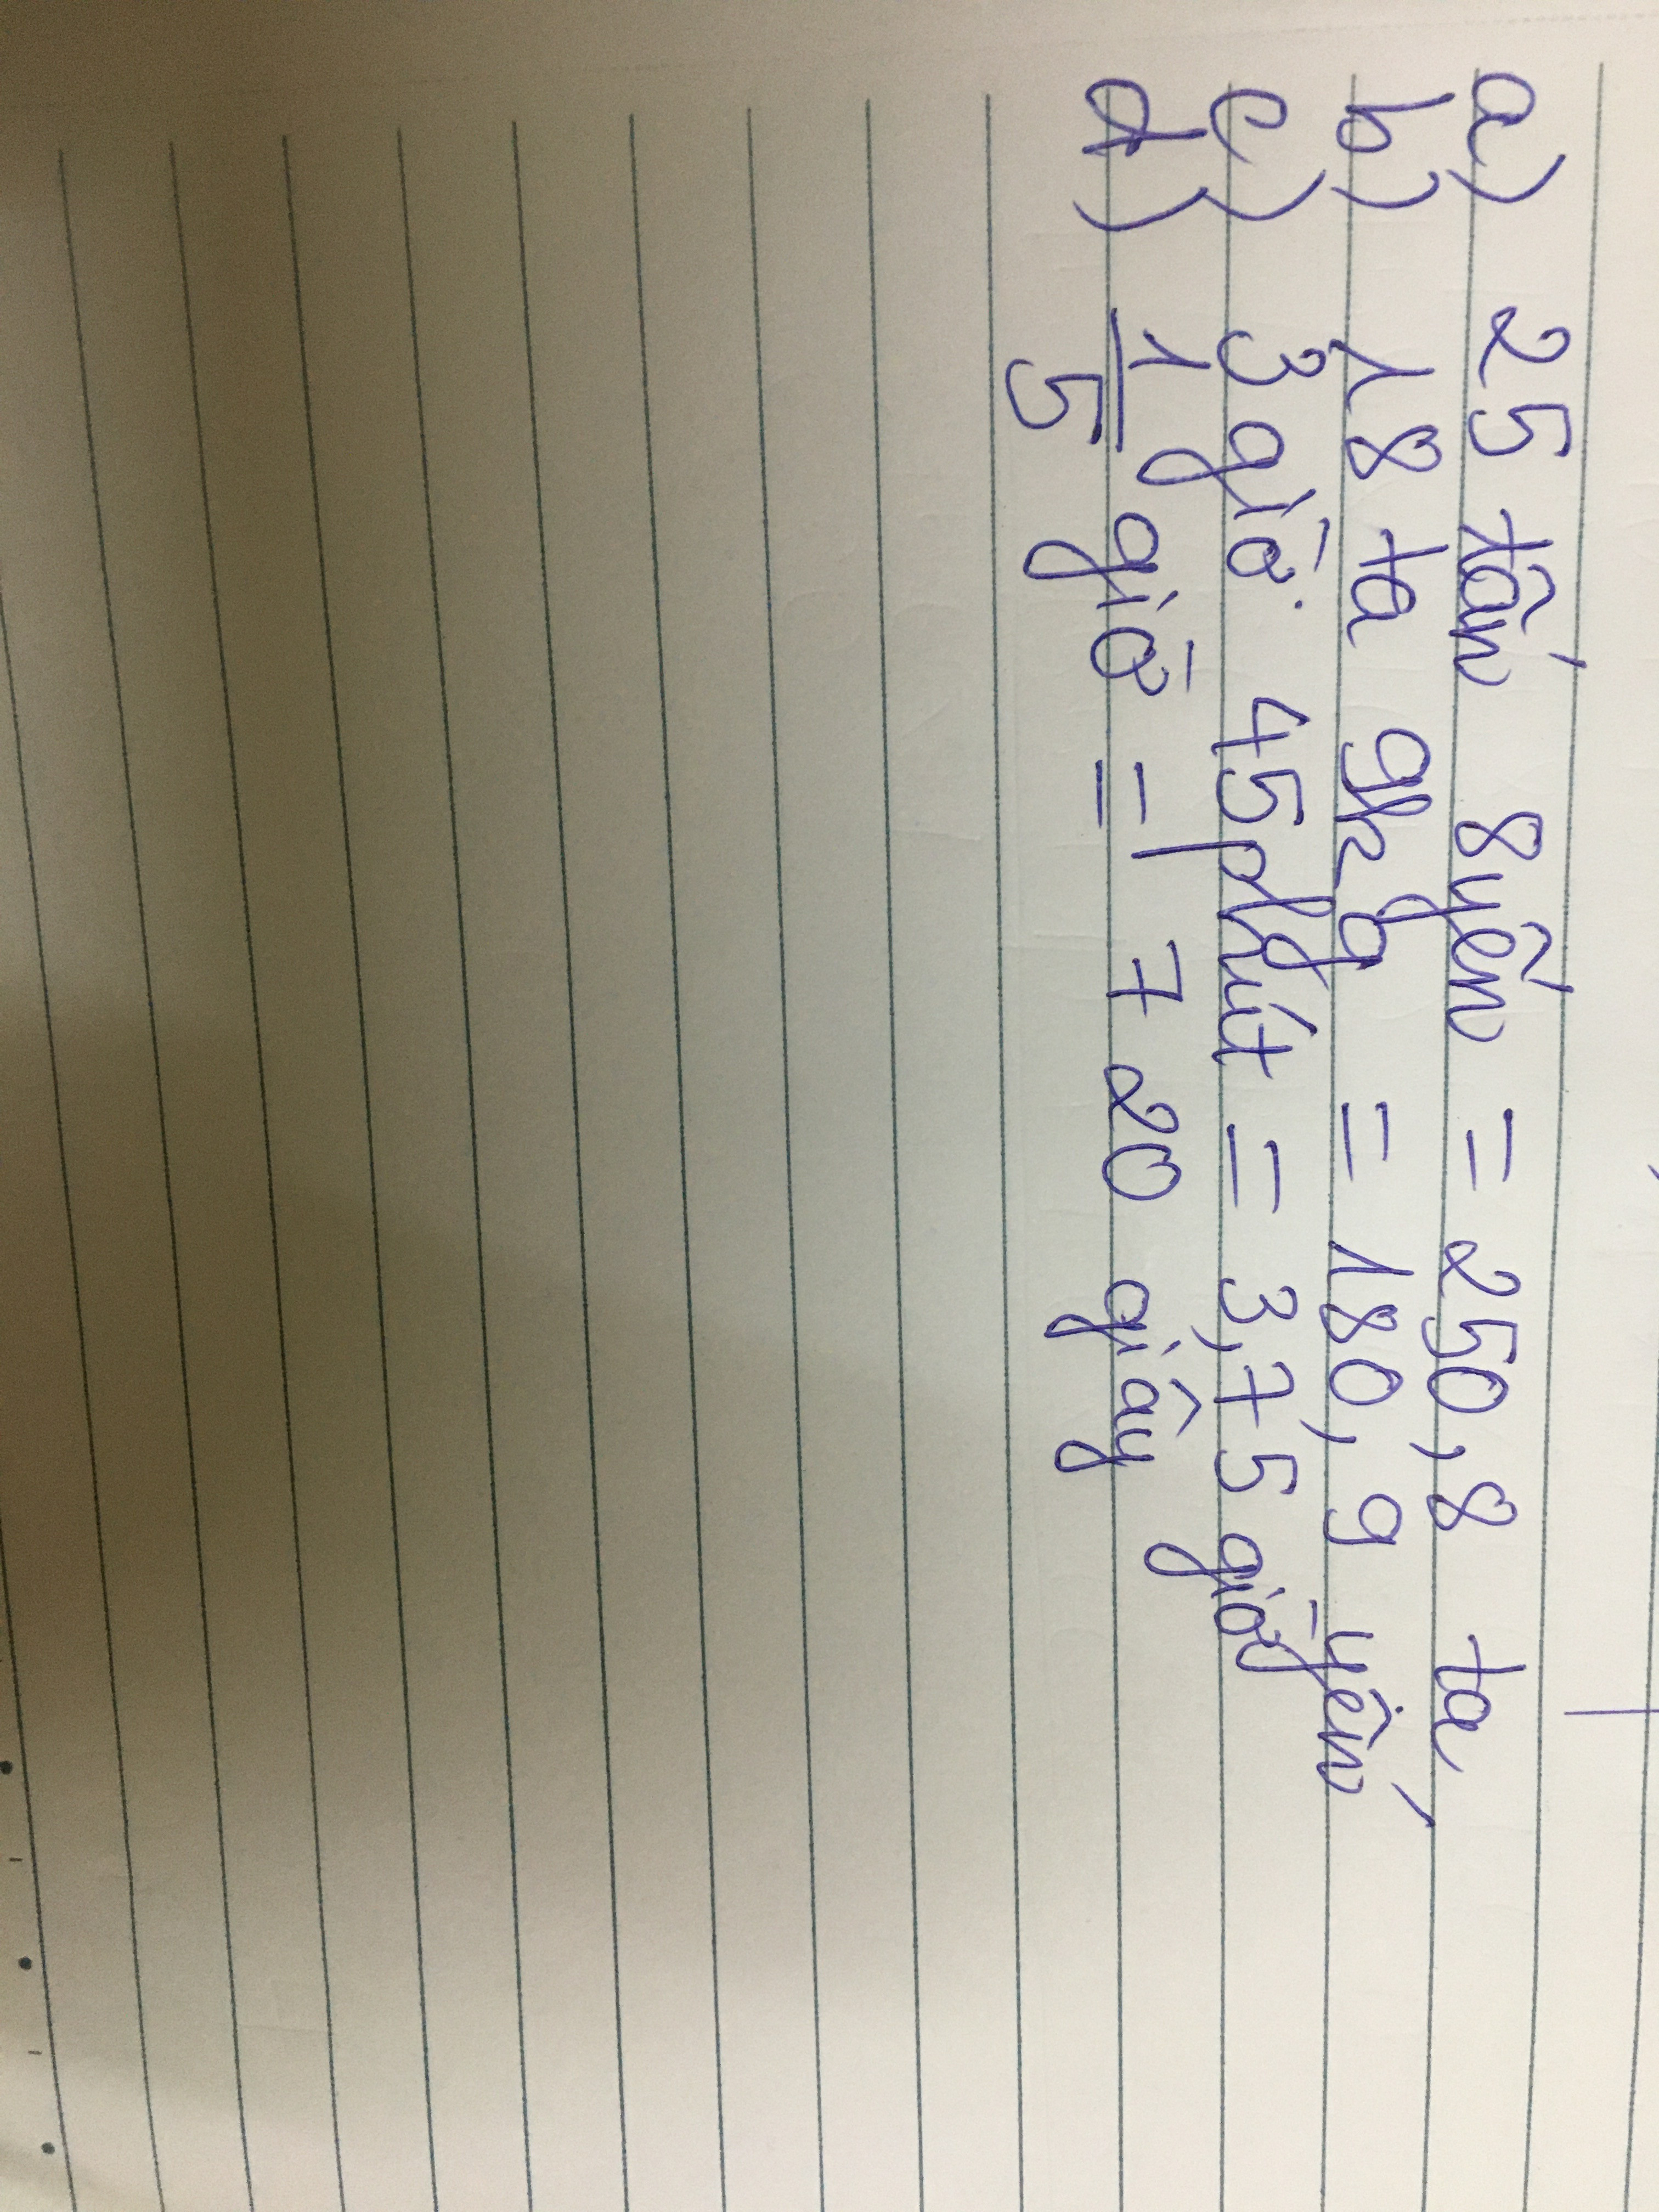 a) 25 tấn 8 yến = 250,8 tạ
b) 18 tạ 9kg = 180,9 yến
c) 3 giờ 45 phút = 3,75 giờ
d) 1/5 giờ = 720 giây